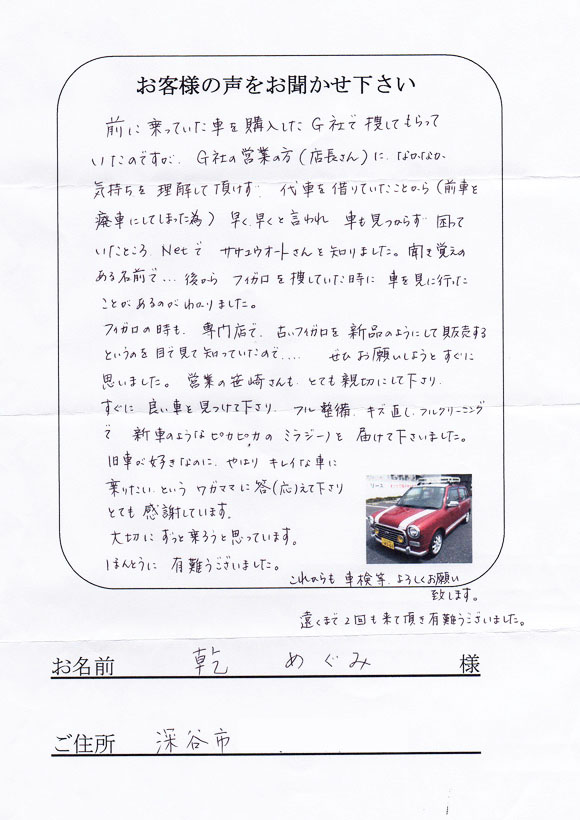 お客様の声をお聞かせ下さい
前に乗っていた車を購入したG社で捜してもらって
いたのですが、G社の営業の方(店長さん)に、なかなか
気持ちを理解して頂けず、代車を借りていたことから(前車を
廃車にしてしまった為)早く、早くと言われ 車も見つからず 困って
いたところ、Netで ササエウオートさんを知りました。聞き覚えの
ある名前で… 後から フィガロを捜していた時に 車を見に行った
ことがあるのがわかりました。
フィガロの時も、専門店で、古いフィガロを新品のようにして販売する
というのを目で見て知っていたので.... ぜひお願いしようとすぐに
思いました。営業の笹崎さんも、とても親切にして下さり、
すぐに 良い車を見つけて下さり、フル整備、キズ直し、フルクリーニング
で 新車のようなピカピカの ミラジーノを 届けて下さいました。
旧車が好きなのに、やはり キレイな車に
乗りたい、という ワガママに 答(応)えて下さり
とても 感謝しています。
大切に ずっと乗ろうと思っています。
ほんとうに 有難うございました。
これからも 車検等、よろしくお願い
致します。
遠くまで2回も来て頂き有難うございました。
お名前 乾 めぐみ 様
ご住所 深谷市